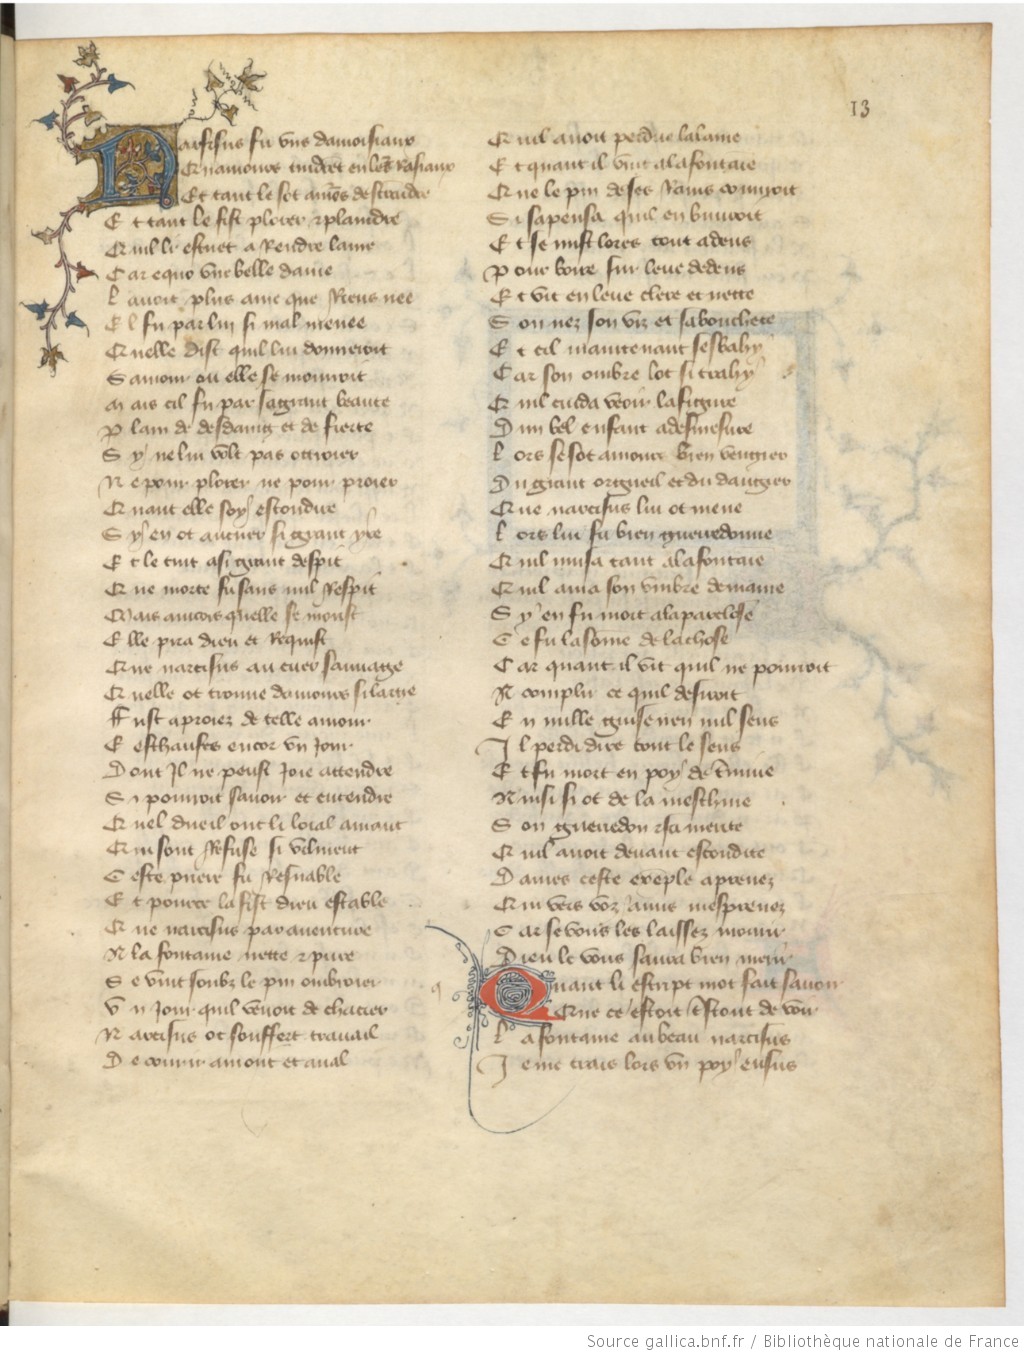 13
Narcisus fu vns damoisiaux
Quamours tindrẽt en leˢ Rasiaux
Et tant le sot amõs destraidre
Et tant le fist plorer ⁊ plaindre
Quil li estuet a Rendre lame
Car equo vne belle dame
Lauoit plus ame que Riens nee
El fu par lui si mal menee
Quelle dist quil lui donneroit
Samour ou elle se mourroit
Mais cil fu par sa grant beaute
Plain de desdaing et de fierte
Sy ne lui volt pas ottroier
Ne pour plorer ne pour proier
Quant elle soy escondire
Sy en ot au cuer si grant yre
Et le tint a si grant despit
Que morte fu sans nul Respit
Mais aincois quelle se mourst
Elle pria dieu et Requist
Que narcisus au cuer sauuage
Quelle ot trouue damours si lache
Fust aproiez de telle amour
E eschaufes encor vn Jour
Dont Jl ne peust Joie attendre
Si pourroit sauoir et entendre
Quel dueil ont li loial amant
Qui sont Refuse si vilment
Ceste priere fu Resnable
Et pource la fist dieu estable
Que narcisus par auenture
A la fontaine nette ⁊ pure
Se vint soubz le pin ombroier
Vn Jour quil venoit de chacier
Narcisus ot souffert trauail
De courir amont et aual
Quil auoit perdue lalaine
Et quant il vint a la fontaine
Que le pin de ses Rains couuroit
Si sapensa quil en buuroit
Et se mist lores tout adens
Pour boire sur leue dedens
Et vit en leue clere et nette
Son nez son viz et sa bouchete
Et cil maintenant sesbahy
Car son ombre lot si trahy
Quil cuida veoir la figure
Dun bel enfant a desmesure
Lors se sot amours bien vengier
Du grant orgueil et du dangier
Que narcisus lui ot mene
Lors lui fu bien guerredonne
Quil musa tant a la fontaine
Quil ama son vmbre demaine
Sy en fu mort a la parclose
Ce fu la some de la chose
Car quant il vit quil ne pourroit
Acomplir ce quil desiroit
En nulle guise nen nul sens
Jl perdi dire tout le sens
Et fu mort en poy de tmine
Ainsi si ot de la meschine
Son guerredon ⁊ sa merite
Quil auoit deuant escondite
Dames ceste exẽple aprenez
Qui vers voz amis mesprenez
Car se vous les laissez mourir
Dieu le vous saura bien merir
Quant li escript mot fait sauoir
Que ce estoit tstout de voir
La fontaine au beau narcisus
Je me trais lors vn poy ensus
Source gallica.bnf.fr / Bibliothèque nationale de France